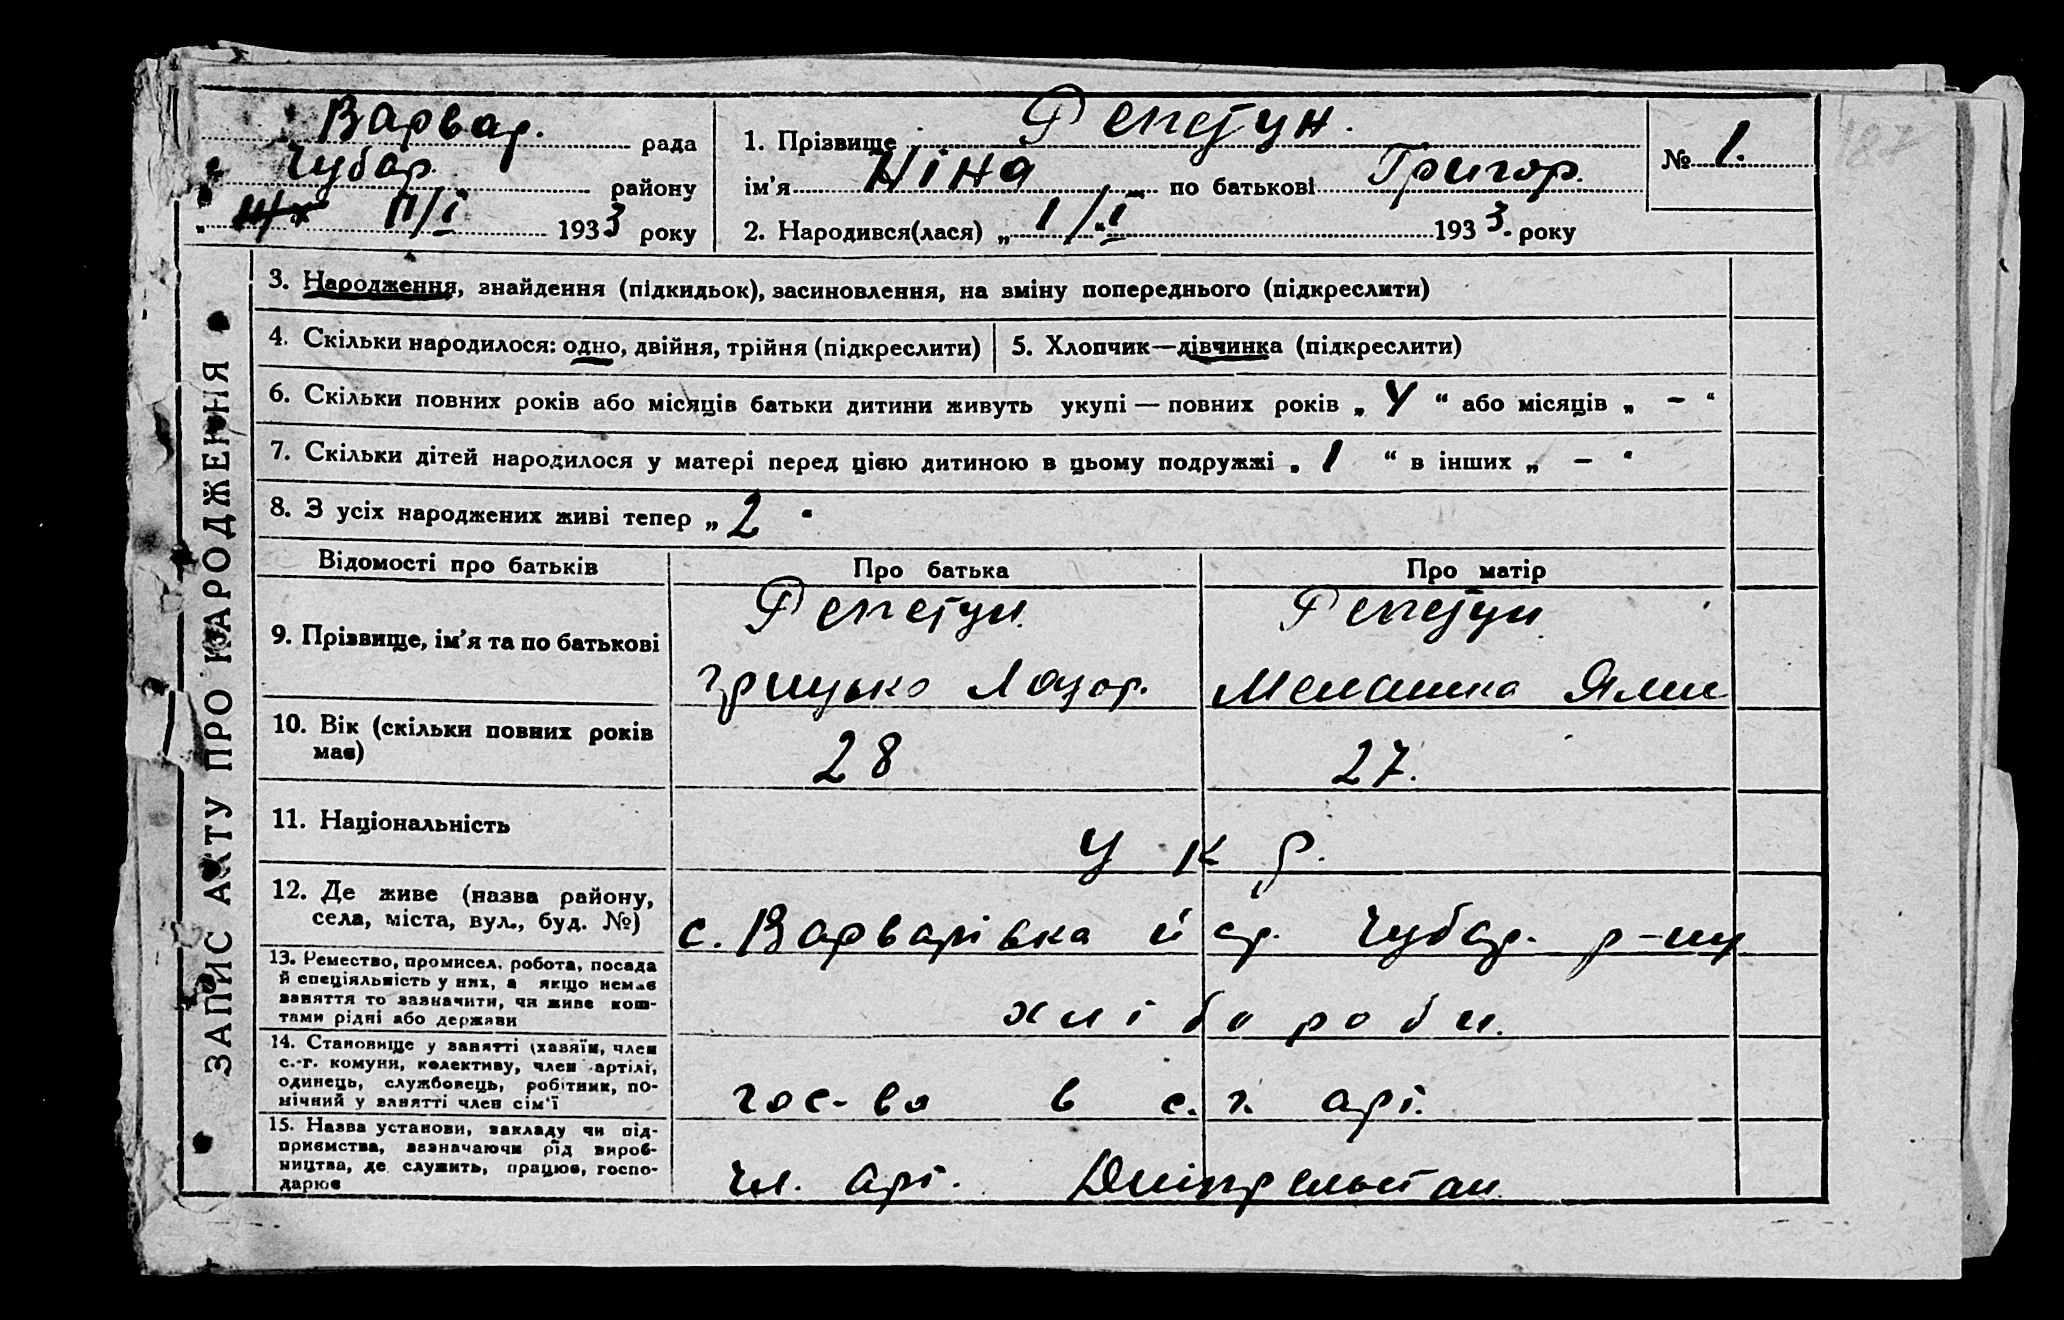 Варвар. рада
с Чубар. району
„ П/І 1933 року
1. Прізвище Репетун.
ім’я Ніна по батькові Григор.
2. Народився(лася) „ 1/І “ 1933. року
№ 1.
187
ЗАПИС АКТУ ПРО НАРОДЖЕННЯ
3. Народження, знайдення (підкидьок), засиновлення, на зміну попереднього (підкреслити)
4. Скільки народилося: одно, двійня, трійня (підкреслити) 5. Хлопчик—дівчинка (підкреслити)
6. Скільки повних років або місяців батьки дитини живуть укупі — повних років „ 4 “ або місяців „ – “
7. Скільки дітей народилося у матері перед цією дитиною в цьому подружжі „ 1 “ в інших „ – “
8. З усіх народжених живі тепер „ 2 “
Відомості про батьків Про батька Про матір
9. Прізвище, ім’я та по батькові
Репетун. Репетун
Грицько Лазор. Меланика Ялик
10. Вік (скільки повних років
має) 28 27.
11. Національність
укр.
12. Де живе (назва району,
села, міста, вул., буд. №)
с. Варварівка Чубар. р-ну
13. Ремество, промисел, робота, посада
й спеціяльність у них, а якщо немає
заняття то зазначити, чи живе кош-
тами рідні або держави
хлібороби.
14. Становище у занятті (хазяїн, член
с.-г. комуни, колективу, член артілі,
одинець, службовець, робітник, по-
мічний у занятті член сім’ї
гос-во в с. г. арт.
15. Назва установи, закладу чи під-
приємства, зазначаючи рід вироб-
ництва, де служить, працює, госпо-
дарює
чл. арт. Дніпрельстан